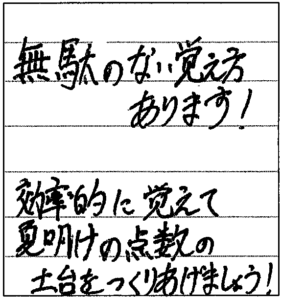 無駄のない覚え方
あります!
効率的に覚えて
夏明けの点数の
土台をつくりあげましょう!